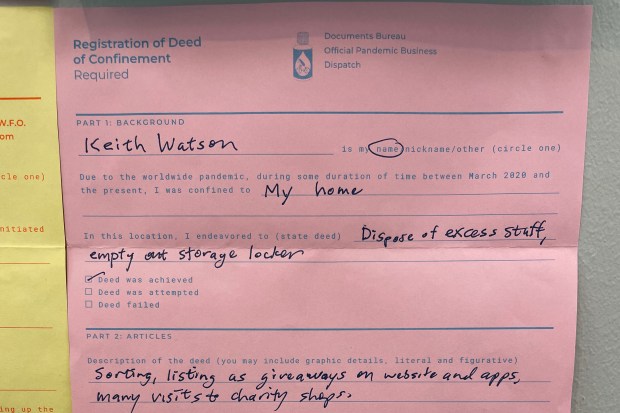 W.F.O.
om
cle one)
nitiated
ing up the
Registration of Deed
of Confinement
Required
Documents Bureau
Official Pandemic Business
Dispatch
PART 1: BACKGROUND
Keith Watson is my name/nickname/other (circle one)
Due to the worldwide pandemic, during some duration of time between March 2020 and
the present, I was confined to My home
In this location, I endeavored to (state deed) Dispose of excess stuff,
empty out storage locker
Deed was achieved
Deed was attempted
Deed failed
PART 2: ARTICLES
Description of the deed (you may include graphic details, literal and figurative)
Sorting, listing as giveaways on website and apps,
many visits to charity shops.